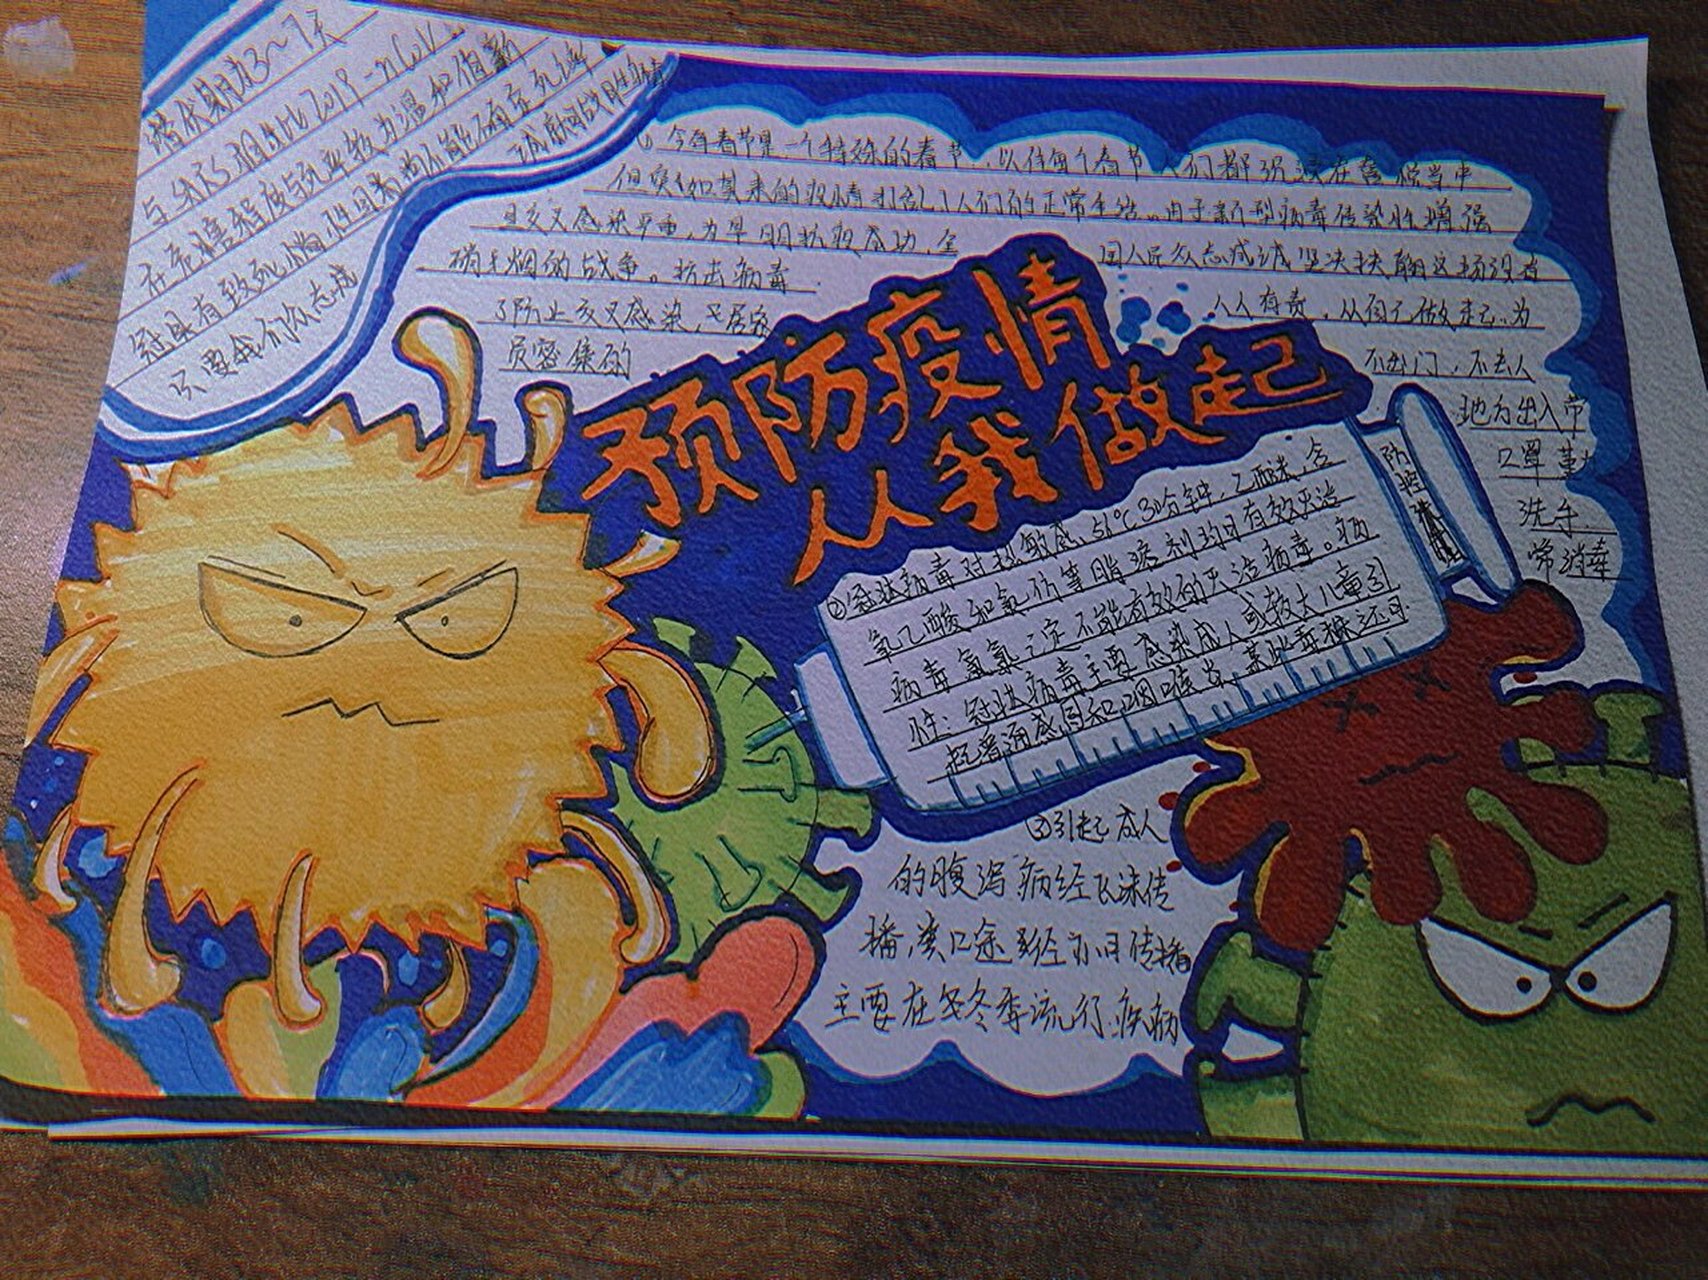 潜伏期为3～7天
与SARS相比2019-nCoV
在危害程度与玩严较为温和但新
冠具有致死 性目前尚不能确定死亡率
只要我们众志成
城就能战胜病毒
①今年春节是一个特殊的春节，以往每个春节人们都沉浸在喜悦当中
但突如其来的疫情打乱了人们的正常生活。由于新型病毒传染性增强
且交叉感染严重，为早日抗疫成功，全
国人民众志成城坚决打赢这场没有
硝烟的战争。抗击病毒
人人有责，从自己做起。为
了防止交叉感染，又居家
不出门，不去人
员密集的
地方出入带
口罩 勤
洗手
常消毒
预防疫情
从我做起
防控
②冠状病毒对热敏感、56℃30分钟、乙醚、含
氯乙酸和氯仿等脂溶剂均可有效灭活
病毒氯氯 定不能有效的灭活病毒。病
性：冠状病毒主要感染成人或较大儿童引
起普通感冒和咽喉炎，某些毒株还可
③引起成人
的腹泻病经飞沫传
播，粪口途径亦可传播
主要在冬季流行 疾病